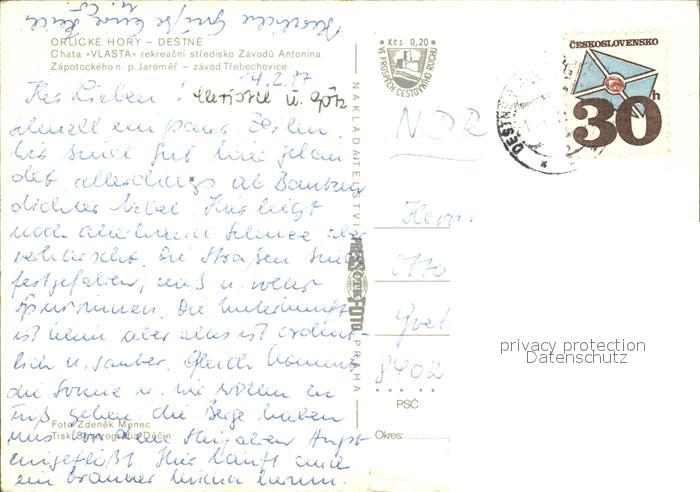 Herzliche Grüße
ORLICKÉ HORY – DEŠTNÉ
Chata »VLASTA« rekreační středisko Závodů Antonína
Zápotockého n. p. Jaroměř – závod Třebechovice
14.2.77
Ihr Lieben! u. Götz
schnell ein paar Zeilen.
Wir sind gut hier gelan
det, allerdings ab Bautzen
dichter Nebel. Hier liegt
noch allerhand Schnee aber
verharscht. Die Straßen sind
festgefahren, naß u. voller
Spurrinnen. Die Unterkunft
ist klein aber alles ist ordent-
lich u. sauber. Gleich kommt
die Sonne u. wir wollen zu
Fuß gehen, die Berge haben
uns vor dem Skifahren Angst
eingeflößt. Hier läuft auch
ein brauner herum.
Foto Zdeněk Menec
Tisk Severografia Děčín
NAKLADATELSTVÍ
PRESSFOTO
PRAHA
Kčs 0,20
VE PROSPĚCH CESTOVNÍHO RUCHU
ČESKOSLOVENSKO
30h
DEŠTN
NDR
Herrn
Otto
8402
PSČ
Okres:
privacy protection
Datenschutz